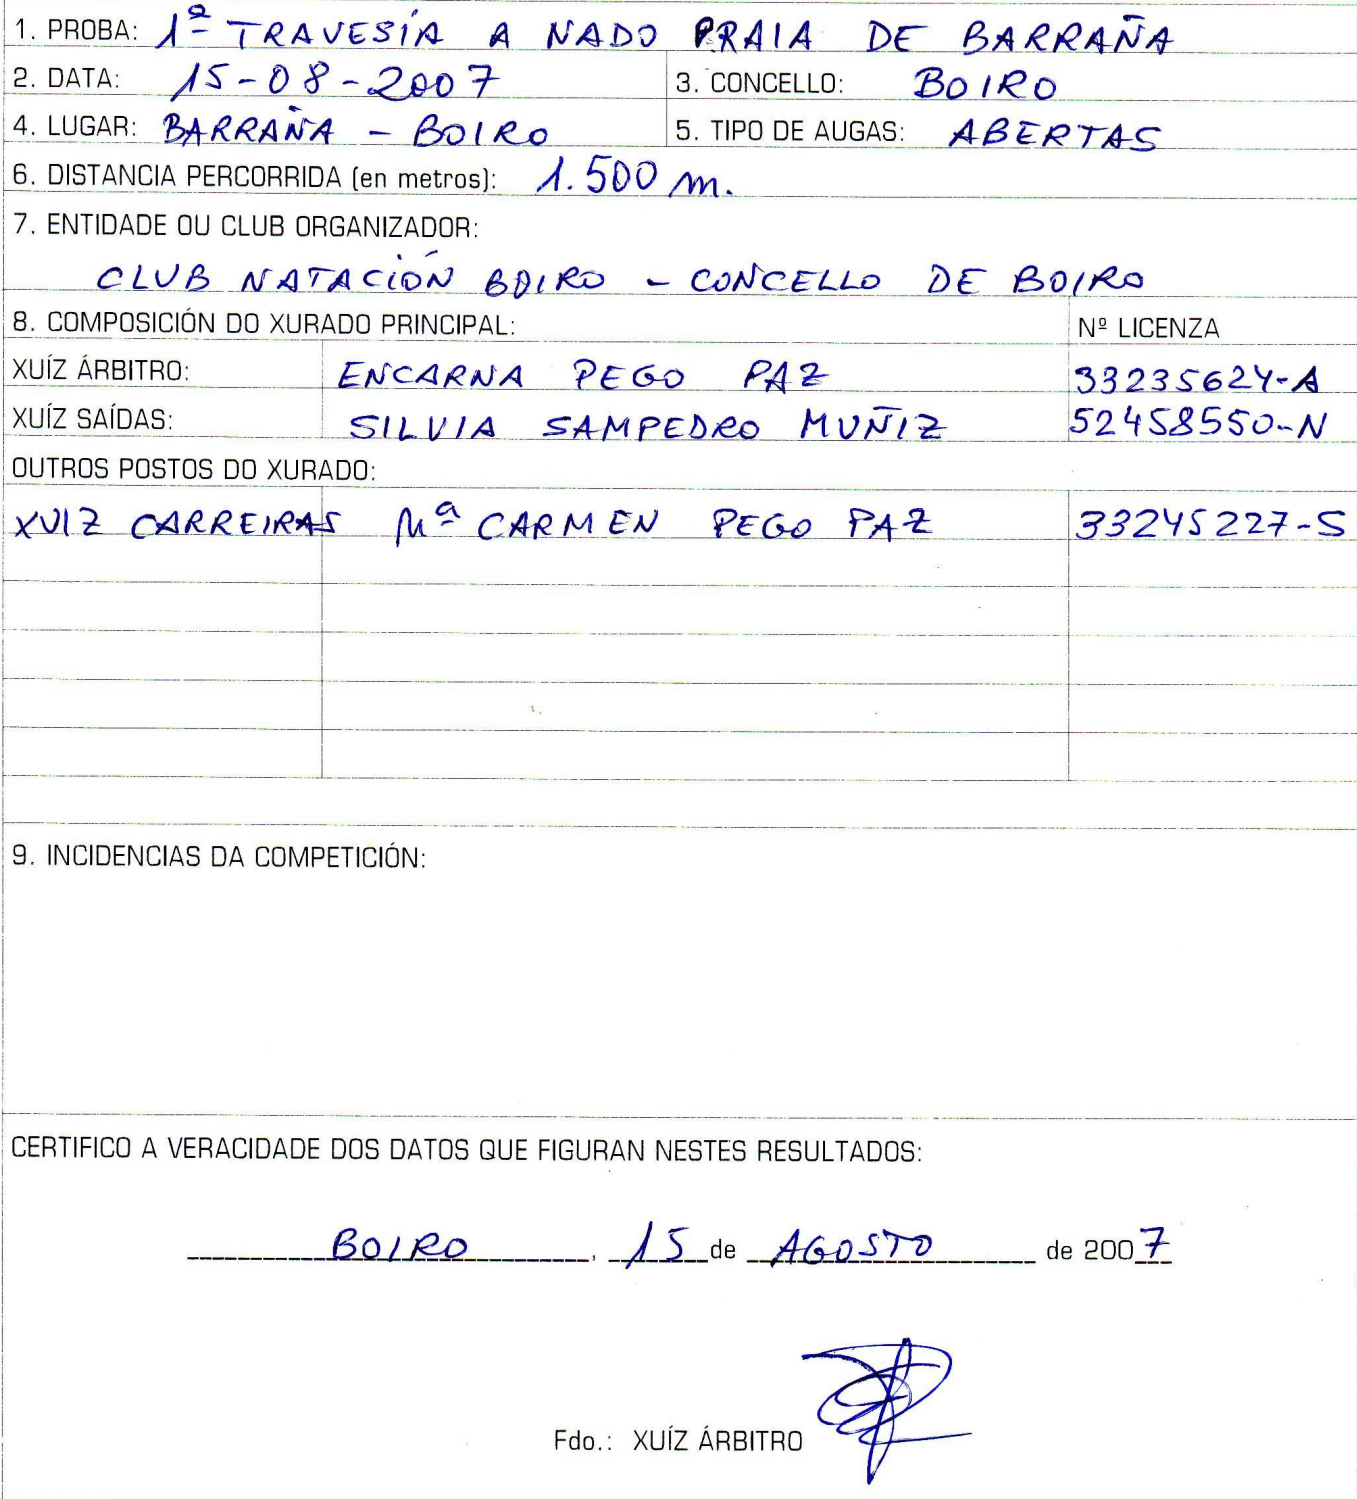 1. PROBA: 1ª TRAVESÍA A NADO PRAIA DE BARRAÑA
2. DATA: 15-08-2007 3. CONCELLO: BOIRO
4. LUGAR: BARRAÑA - BOIRO 5. TIPO DE AUGAS: ABERTAS
6. DISTANCIA PERCORRIDA (en metros): 1.500 m.
7. ENTIDADE OU CLUB ORGANIZADOR:
CLUB NATACIÓN BOIRO - CONCELLO DE BOIRO
8. COMPOSICIÓN DO XURADO PRINCIPAL: Nº LICENZA
XUÍZ ÁRBITRO: ENCARNA PEGO PAZ 33235624-A
XUÍZ SAÍDAS: SILVIA SAMPEDRO MUÑIZ 52458550-N
OUTROS POSTOS DO XURADO:
XUIZ CARREIRAS Mª CARMEN PEGO PAZ 33245227-S
9. INCIDENCIAS DA COMPETICIÓN:
CERTIFICO A VERACIDADE DOS DATOS QUE FIGURAN NESTES RESULTADOS:
BOIRO, 15 de AGOSTO de 2007
Fdo.: XUÍZ ÁRBITRO